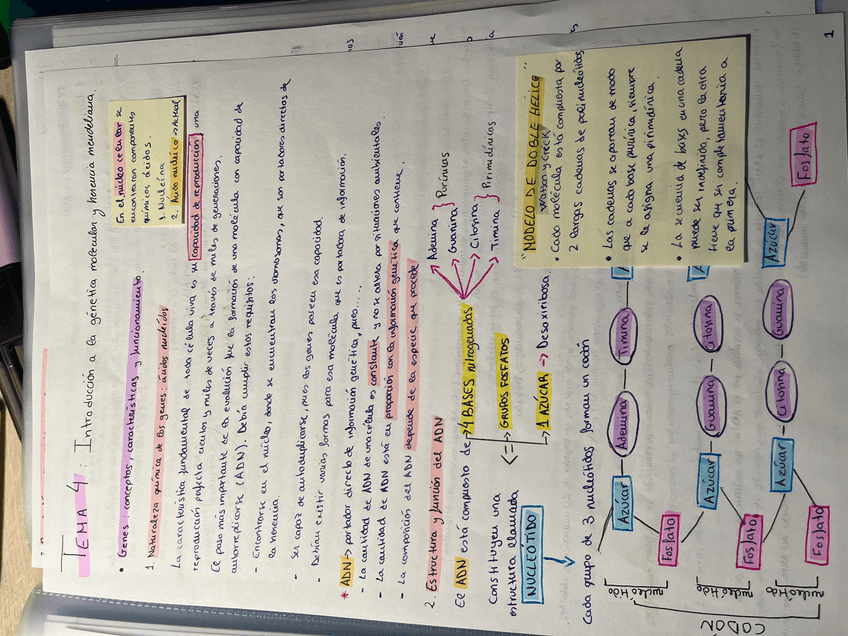 TEMA 4: Introducción a la génetica molecular y herencia mendeliana.
• Genes: conceptos, características y funcionamiento.
1. Naturaleza química de los genes: ácidos nucleídos
En el núcleo celular se
encontraron componentes
químicos ácidos.
1. Nucleína
2. Ácido nucleico → Actual
La característica fundamental de toda célula viva es su capacidad de reproducción, una
reproducción perfecta cientos y miles de veces a través de miles de generaciones.
El paso más importante de la evolución fue la formación de una molécula con capacidad de
autorreplicarse (ADN). Debía cumplir estos requisitos:
- Encontrarse en el núcleo, donde se encuentran los cromosomas, que son portadores directos de
la herencia.
- Ser capaz de autoduplicarse, pues los genes poseen esa capacidad.
- Debían existir varias formas para esa molécula que es portadora de información.
* ADN → portador directo de información genética, pues.....
- La cantidad de ADN de una célula es constante y no se altera por situaciones ambientales
- La cantidad de ADN está en proporción con la información genética que contiene.
- La composición del ADN depende de la especie que procede
2. Estructura y función del ADN
El ADN está compuesto de → 4 BASES nitrogenadas
Adenina
Guanina
Púrinvas
Citosina
Timina
Pirimidínicas
GRUPOS FOSFATOS
1 AZÚCAR → Desoxirribosa.
Constituyen una
estructura llamada
NUCLEÓTIDO
Cada grupo de 3 nucleóticos forman un codón
"MODELO DE DOBLE HÉLICE"
Watson y Creek
• Cada molécula está compuesta por
2 largas cadenas de polinucleótidos
• Las cadenas se aparean de modo
que a cada base purínica, siempre
se le asigna una pirimidínica.
• La secuencia de bases en una cadena
puede ser indefinida, pero la otra
tiene que ser complementaria a
la primera.
Azúcar Adenina Timina
Fosfato
Azúcar Guanina Citosina
Fosfato
Azúcar Citosina Guanina Azúcar
Fosfato Fosfato
nucleótido
nucleótido
nucleótido
CODÓN
1